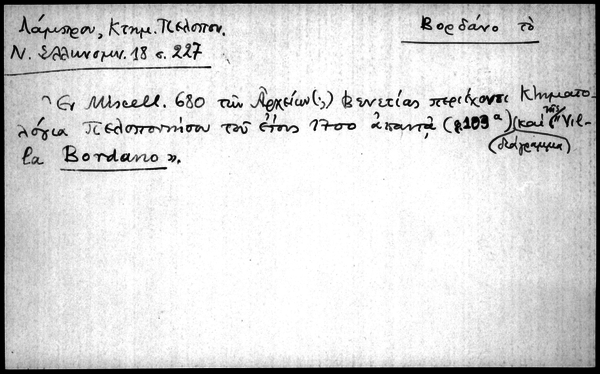 Λάμπρου, Κτημ. Πελοπον.
Ν. Ἑλληνομν. 18 σ. 227
Βορδάνο τὸ
"Ἐν Miscell. 680 τῶν Ἀρχείων(;) Βενετίας περιέχονσι Κτηματο-
λόγια Πελοποννήσου τοῦ ἔτους 1700 ἀπαντᾷ (φ. 103ᵃ) (καὶ τῆς "Vil-
la Bordano».
(διάγραμμα)